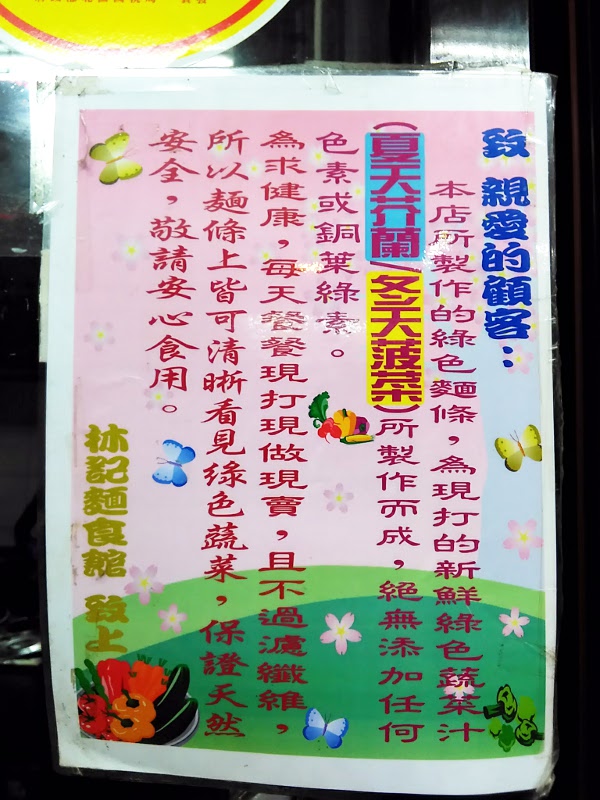 致 親愛的顧客：
本店所製作的綠色麵條，為現打的新鮮綠色蔬菜汁
(夏天芥蘭/冬天菠菜)所製作而成，絕無添加任何
色素或銅葉綠素。
為求健康，每天餐餐現打現做現賣，且不過濾纖維，
所以麵條上皆可清晰看見綠色蔬菜，保證天然
安全，敬請安心食用。
林記麵食館 致上